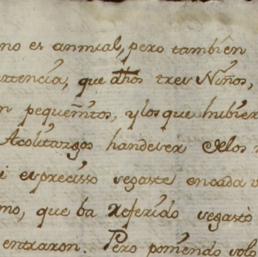 no es anmial, pero tambien
rtencia, que dhos tres Niños,
n pequeñitos, y los que hubier
Acolitazgos handeser
i es presisso segaste en cada v
mo, que ba Referido segastò
entraron. Pero poniendo volo